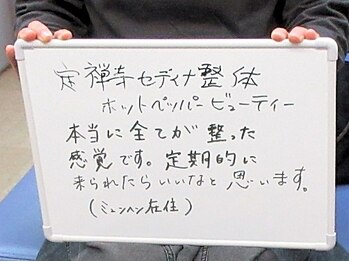 定禅寺セディナ整体
ホットペッパービューティー
本当に全てが整った
感覚です。定期的に
来られたらいいなと思います。
(ミュンヘン在住)